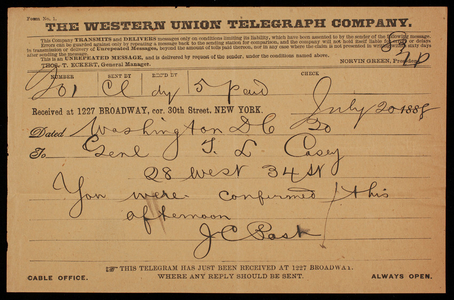 Form No. 1.
THE WESTERN UNION TELEGRAPH COMPANY.
This Company TRANSMITS and DELIVERS messages only on conditions limiting its liability, which have been assented to by the sender of the following message.
Errors can be guarded against only by repeating a message back to the sending station for comparison, and the company will not hold itself liable for errors or delays
in transmission or delivery of Unrepeated Messages, beyond the amount of tolls paid thereon, nor in any case where the claim is not presented in writing within sixty days
after sending the message.
This is an UNREPEATED MESSAGE, and is delivered by request of the sender, under the conditions named above.
THOS. T. ECKERT, General Manager. NORVIN GREEN, President.
NUMBER SENT BY REC'D BY CHECK
Cl dy 5 paid
Received at 1227 BROADWAY, cor. 30th Street. NEW YORK. July 20 1888
Dated Washington D C 20
To Genl T. L. Casey
28 West 34 St
You were confirmed this
afternoon
J C Post
THIS TELEGRAM HAS JUST BEEN RECEIVED AT 1227 BROADWAY.
CABLE OFFICE. WHERE ANY REPLY SHOULD BE SENT. ALWAYS OPEN.